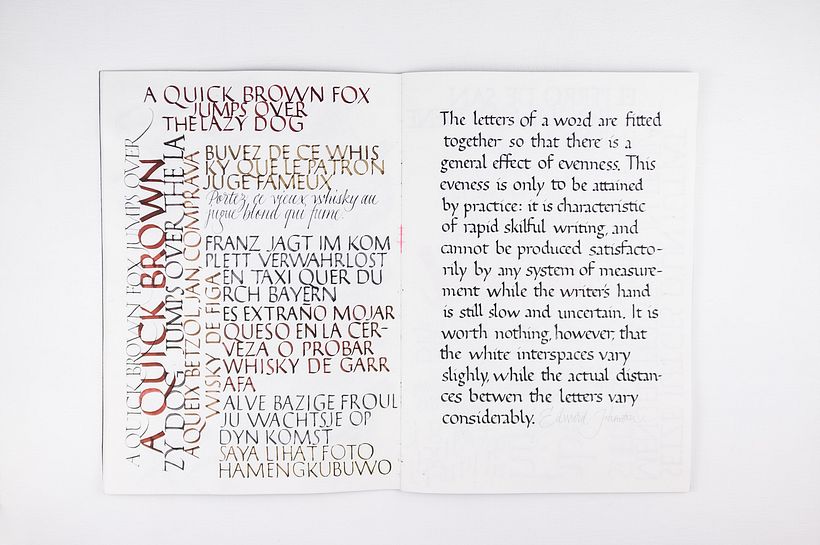 A QUICK BROWN FOX
JUMPS OVER
THE LAZY DOG
A QUICK BROWN FOX JUMPS OVER
A QUICK BROWN
ZY DOG JUMPS OVER THE LA
AQUEIX BETZOL JAN COMPRAVA
WISKY DE FIGA
BUVEZ DE CE WHIS
KY QUE LE PATRON
JUGE FAMEUX
Portez ce vieux whisky au
juge blond qui fume.
FRANZ JAGT IM KOM
PLETT VERWAHRLOST
EN TAXI QUER DU
RCH BAYERN
ES EXTRAÑO MOJAR
QUESO EN LA CER-
VEZA O PROBAR
WHISKY DE GARR
AFA
ALVE BAZIGE FROUL
JU WACHTSJE OP
DYN KOMST
SAYA LIHAT FOTO
HAMENGKUBUWO
The letters of a word are fitted
together so that there is a
general effect of evenness. This
eveness is only to be attained
by practice: it is characteristic
of rapid skilful writing, and
cannot be produced satisfacto-
rily by any system of measure-
ment while the writer's hand
is still slow and uncertain. It is
worth nothing, however, that
the white interspaces vary
slighly, while the actual distan-
ces betwen the letters vary
considerably. Edward Johnston